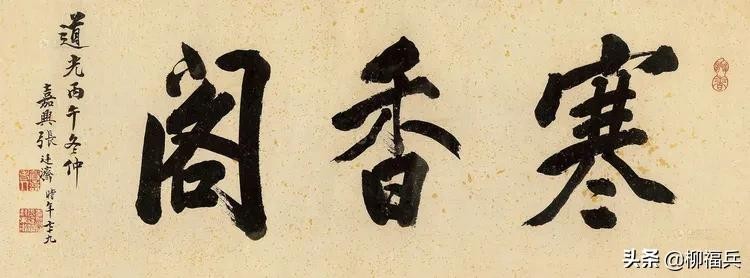 寒香閣
道光丙午冬仲
嘉興張廷濟時年七十九
头条 @柳福兵